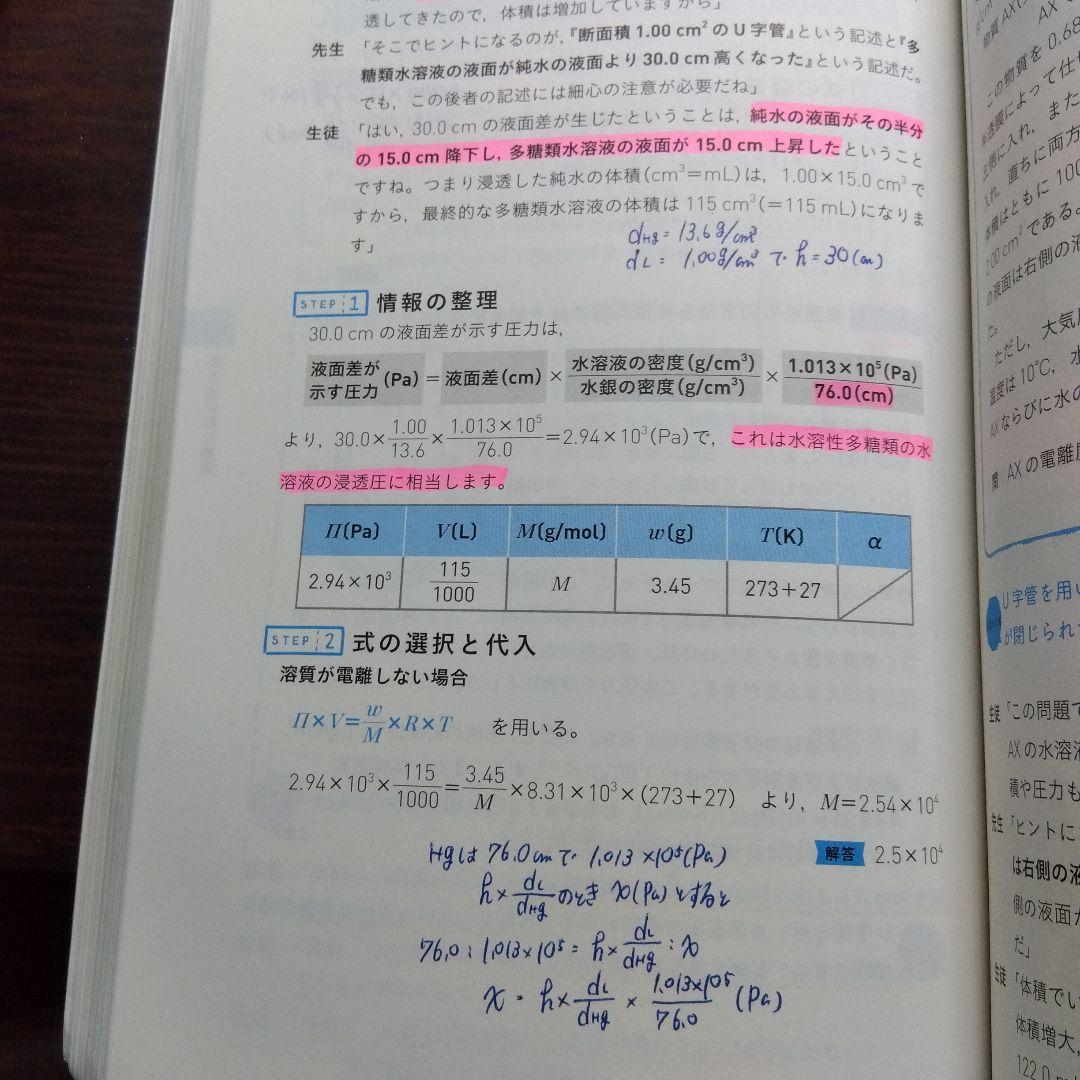 透してきたので，体積は増加していますから」
先生 「そこでヒントになるのが，『断面積 1.00 cm² の U 字管』という記述と『多
糖類水溶液の液面が純水の液面より 30.0 cm 高くなった』という記述だ。
でも，この後者の記述には細心の注意が必要だね」
生徒 「はい，30.0 cm の液面差が生じたということは，純水の液面がその半分
の 15.0 cm 降下し，多糖類水溶液の液面が 15.0 cm 上昇したということ
ですね。つまり浸透した純水の体積(cm³＝mL)は，1.00×15.0 cm³ で
すから，最終的な多糖類水溶液の体積は 115 cm³(＝115 mL)になりま
す」
dHg = 13.6g/cm³
dL = 1.00g/cm³ で h=30(cm)
STEP 1 情報の整理
30.0 cm の液面差が示す圧力は，
液面差が示す圧力(Pa)＝液面差(cm)×水溶液の密度(g/cm³)/水銀の密度(g/cm³)×1.013×10⁵(Pa)/76.0(cm)
より，30.0×1.00/13.6×1.013×10⁵/76.0＝2.94×10³(Pa)で，これは水溶性多糖類の水
溶液の浸透圧に相当します。
Π(Pa) V(L) M(g/mol) w(g) T(K) α
2.94×10³ 115/1000 M 3.45 273+27
STEP 2 式の選択と代入
溶質が電離しない場合
Π×V=w/M×R×T を用いる。
2.94×10³×115/1000＝3.45/M×8.31×10³×(273+27) より，M＝2.54×10⁴
解答 2.5×10⁴
Hgは 76.0cmで 1.013×10⁵(Pa)
h×dL/dHg のとき x(Pa)とすると
76.0 : 1.013×10⁵ = h×dL/dHg : x
x = h×dL/dHg × 1.013×10⁵/76.0 (Pa)
物質 AX
この物質を 0.68
半透膜によって仕
左側に入れ，また
入れ，直ちに両方
体積はともに 100
2.00 cm² である。
の液面は右側の液
た。
ただし，大気
温度は 10℃，水
AX ならびに水の
問 AX の電離度
U 字管を用い
が閉じられて
生徒 「この問題で
AX の水溶液
積や圧力も
先生 「ヒントに
は右側の液
側の液面が
だ」
生徒 「体積でい
体積増大，
122.0 m